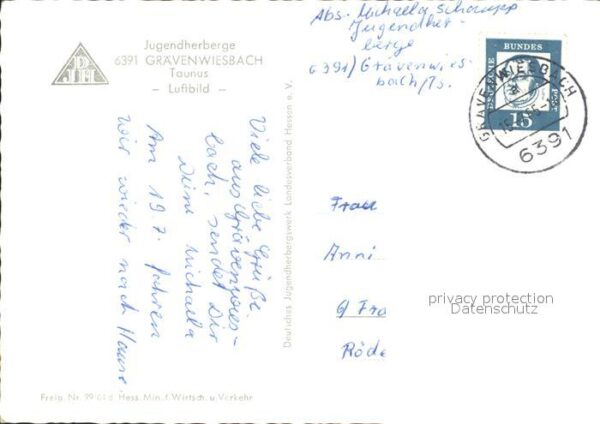 Jugendherberge
6391 GRÄVENWIESBACH
Taunus
– Luftbild –
DJH
Abs. Michaela Schaupp
Jugendher
berge
6391) Grävenwies
bach/Ts.
DEUTSCHE BUNDESPOST
15
GRÄVENWIESBACH
6391
Viele liebe Grüße
aus Grävenwies-
bach, sendet Dir
Deine Michaela
Am 19.7. fahren
wir wieder nach Hause.
Deutsches Jugendherbergswerk Landesverband Hessen e. V.
Frau
Anni
6 Fra
Röde
privacy protection
Datenschutz
Hess. Min. f. Wirtsch. u. Verkehr